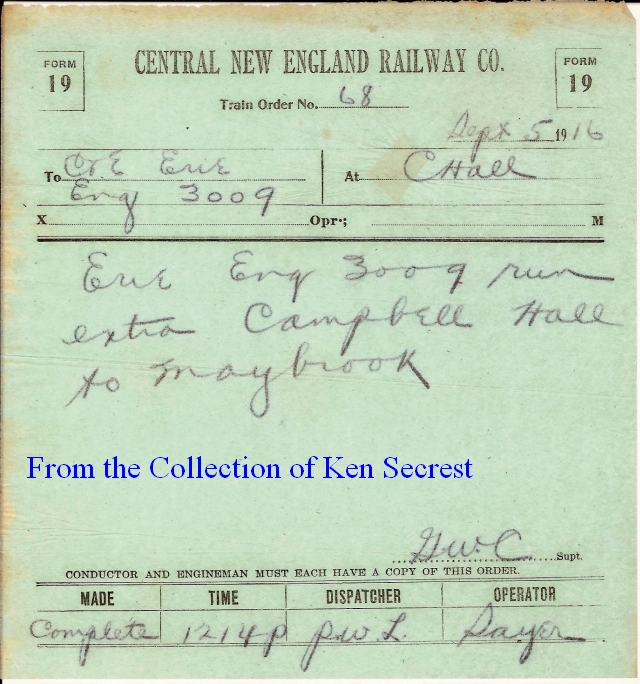 FORM 19
CENTRAL NEW ENGLAND RAILWAY CO.
FORM 19
Train Order No. 68
Sept 5 1916
To C&E Erie
At C Hall
Eng 3009
X Opr.; M
Erie Eng 3009 run
extra Campbell Hall
to Maybrook
From the Collection of Ken Secrest
G.W.C Supt.
CONDUCTOR AND ENGINEMAN MUST EACH HAVE A COPY OF THIS ORDER.
MADE TIME DISPATCHER OPERATOR
Complete 1214P P.W.L. Sayer